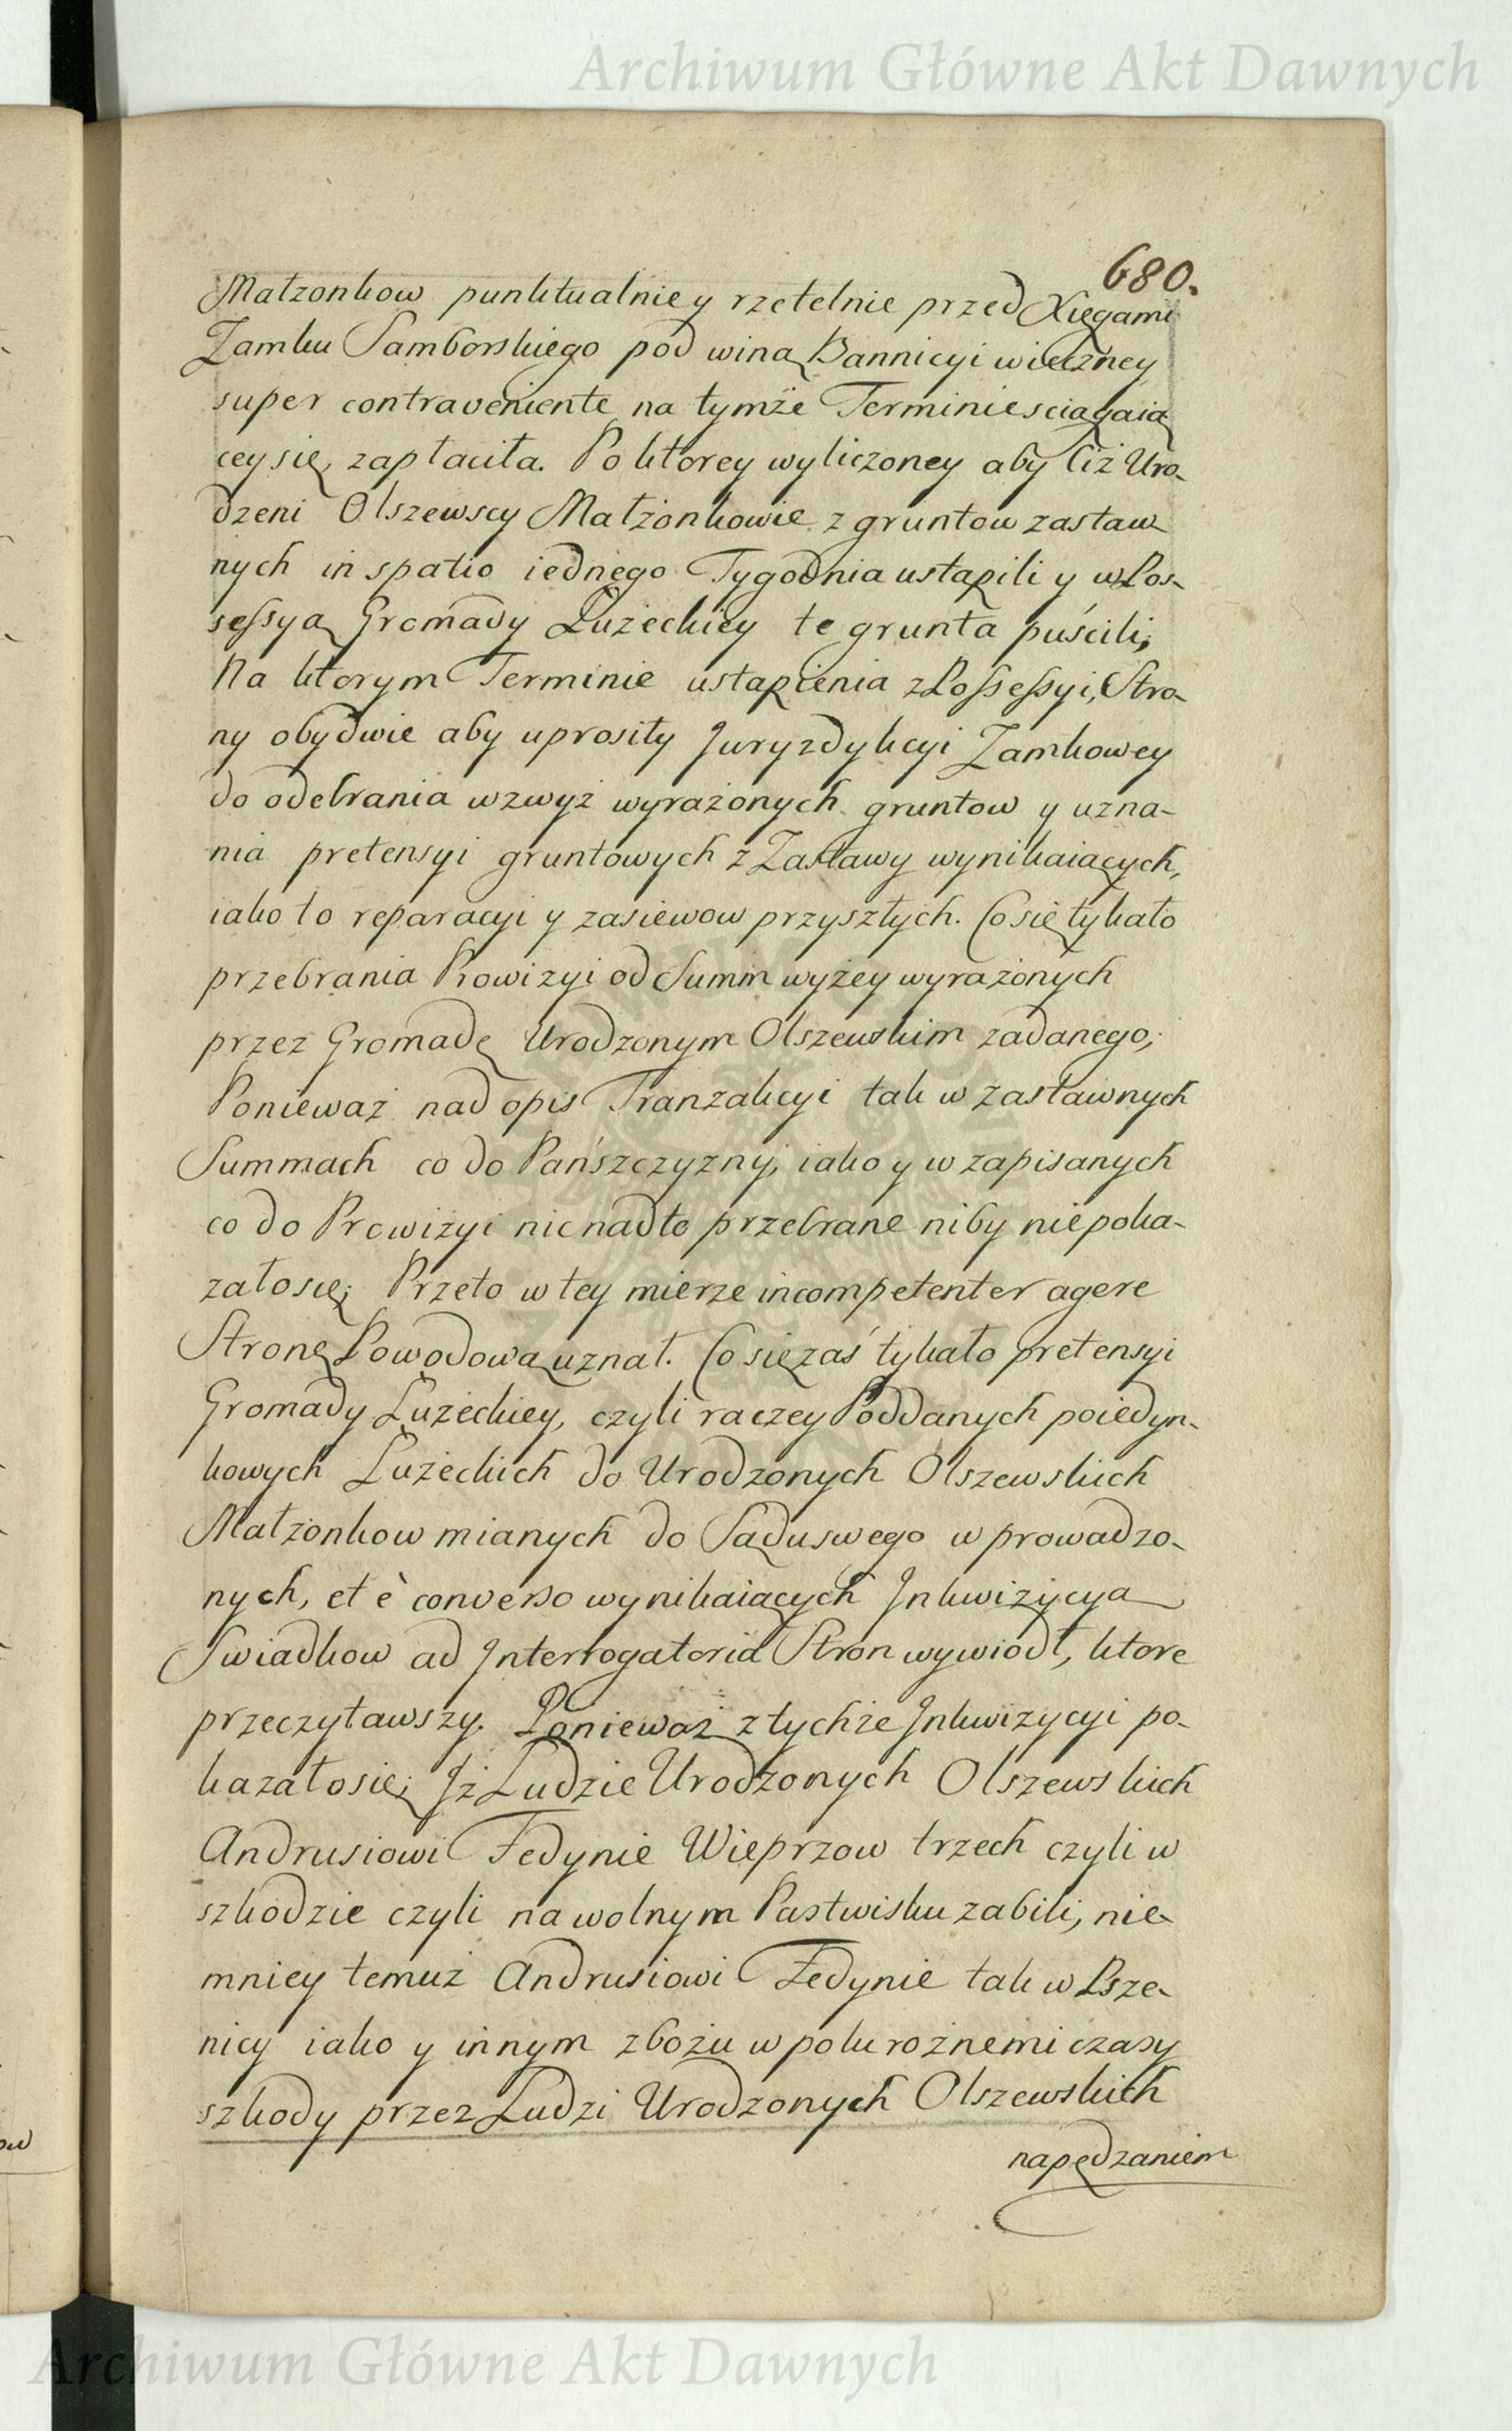 Archiwum Główne Akt Dawnych
680.
Małzonkow punktualnie y rzetelnie przed Xięgami
Zamku Samborskiego pod winą Bannicyi wieczney
super contraveniente na tymże Terminie sciągaią
cey się, zapłaciła. Po ktorey wyliczoney aby Ciż Uro-
dzeni Olszewscy Małżonkowie z gruntow zastaw-
nych in spatio iednego Tygodnia ustąpili y w Pos-
sessyą Gromady Łużeckiey te grunta puścili;
Na ktorym Terminie ustąpienia z Possessyi, Stro-
ny obydwie aby uprosiły Juryzdykcyi Zamkowey
do odebrania wzwyż wyrażonych gruntow y uzna-
nia pretensyi gruntowych z Zastawy wynikaiących,
iako to reparacyi y zasiewow przyszłych. Co się tykało
przebrania Prowizyi od Summ wyżey wyrażonych
przez Gromadę Urodzonym Olszewskim zadanego;
Ponieważ nad opis Tranzakcyi tak w zastawnych
Summach co do Pańszczyzny, iako y w zapisanych
co do Prowizyi nic nadto przebrane niby niepoka-
załosię; Przeto w tey mierze incompetenter agere
Stronę Powodową uznał. Co się zaś tykało pretensyi
Gromady Łużeckiey, czyli raczey Poddanych poiedyn-
kowych Łużeckich do Urodzonych Olszewskich
Małżonkow mianych do Sądu swego wprowadzo-
nych, et è converso wynikaiących Jnkwizycya
Swiadkow ad Jnterrogatoria Stron wywiodł, ktore
przeczytawszy. Ponieważ z tychże Jnkwizycyi po-
kazałosię; Jż Ludzie Urodzonych Olszewskich
Andrusiowi Fedynie Wieprzow trzech czyli w
szkodzie czyli na wolnym Pastwisku zabili, nie-
mniey temuż Andrusiowi Fedynie tak w Psze-
nicy iako y innym zbożu w polu rożnemi czasy
szkody przez Ludzi Urodzonych Olszewskich
napędzaniem
Archiwum Główne Akt Dawnych